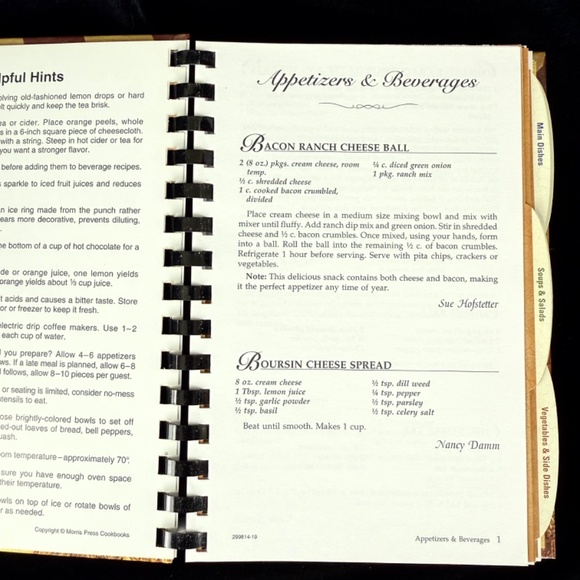 lpful Hints
olving old-fashioned lemon drops or hard
lt quickly and keep the tea brisk.
ea or cider. Place orange peels, whole
s in a 6-inch square piece of cheesecloth.
with a string. Steep in hot cider or tea for
you want a stronger flavor.
before adding them to beverage recipes.
sparkle to iced fruit juices and reduces
n ice ring made from the punch rather
ears more decorative, prevents diluting,
he bottom of a cup of hot chocolate for a
de or orange juice, one lemon yields
orange yields about ⅓ cup juice.
t acids and causes a bitter taste. Store
or or freezer to keep it fresh.
electric drip coffee makers. Use 1–2
each cup of water.
you prepare? Allow 4–6 appetizers
ws. If a late meal is planned, allow 6–8
l follows, allow 8–10 pieces per guest.
or seating is limited, consider no-mess
tensils to eat.
ose brightly-colored bowls to set off
ed-out loaves of bread, bell peppers,
uash.
om temperature–approximately 70°.
sure you have enough open space
their temperature.
wls on top of ice or rotate bowls of
r as needed.
Copyright © Morris Press Cookbooks
Appetizers & Beverages
BACON RANCH CHEESE BALL
2 (8 oz.) pkgs. cream cheese, room
temp.
½ c. shredded cheese
1 c. cooked bacon crumbled,
divided
¼ c. diced green onion
1 pkg. ranch mix
Place cream cheese in a medium size mixing bowl and mix with
mixer until fluffy. Add ranch dip mix and green onion. Stir in shredded
cheese and ½ c. bacon crumbles. Once mixed, using your hands, form
into a ball. Roll the ball into the remaining ½ c. of bacon crumbles.
Refrigerate 1 hour before serving. Serve with pita chips, crackers or
vegetables.
Note: This delicious snack contains both cheese and bacon, making
it the perfect appetizer any time of year.
Sue Hofstetter
BOURSIN CHEESE SPREAD
8 oz. cream cheese
1 Tbsp. lemon juice
½ tsp. garlic powder
½ tsp. basil
½ tsp. dill weed
¼ tsp. pepper
½ tsp. parsley
½ tsp. celery salt
Beat until smooth. Makes 1 cup.
Nancy Damm
299814-19
Appetizers & Beverages 1
Main Dishes
Soups & Salads
Vegetables & Side Dishes